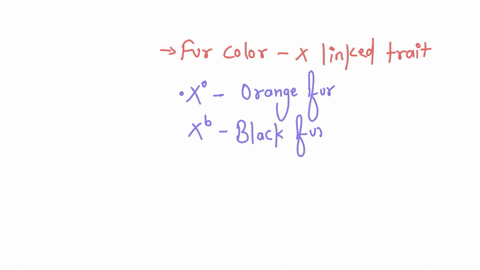 → Fur color - x linked trait
• X° - Orange fur
X^b - Black fur